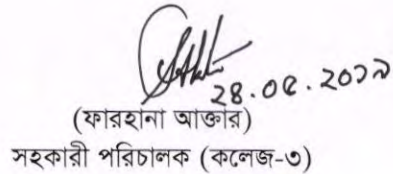 ২৪.০৫.২০১৯
(ফারহানা আক্তার)
সহকারী পরিচালক (কলেজ-৩)